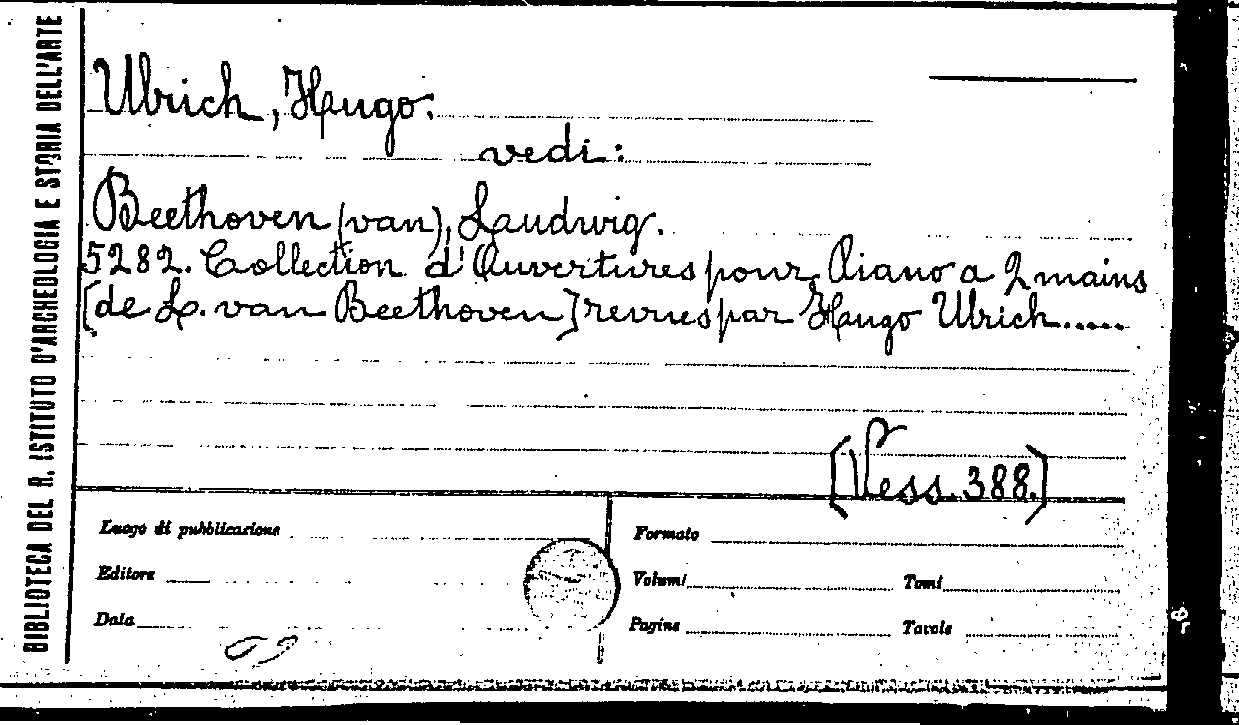 BIBLIOTECA DEL R. ISTITUTO D'ARCHEOLOGIA E STORIA DELL'ARTE
Ulrich, Hugo.
vedi:
Beethoven (van), Laudwig.
5282. Collection d'Ouvertures pour Piano a 2 mains
[de L. van Beethoven] revues par Hugo Ulrich.....
[Vess. 388.]
Luogo di pubblicazione
Editore
Data
Formato
Volumi Tomi
Pagine Tavole